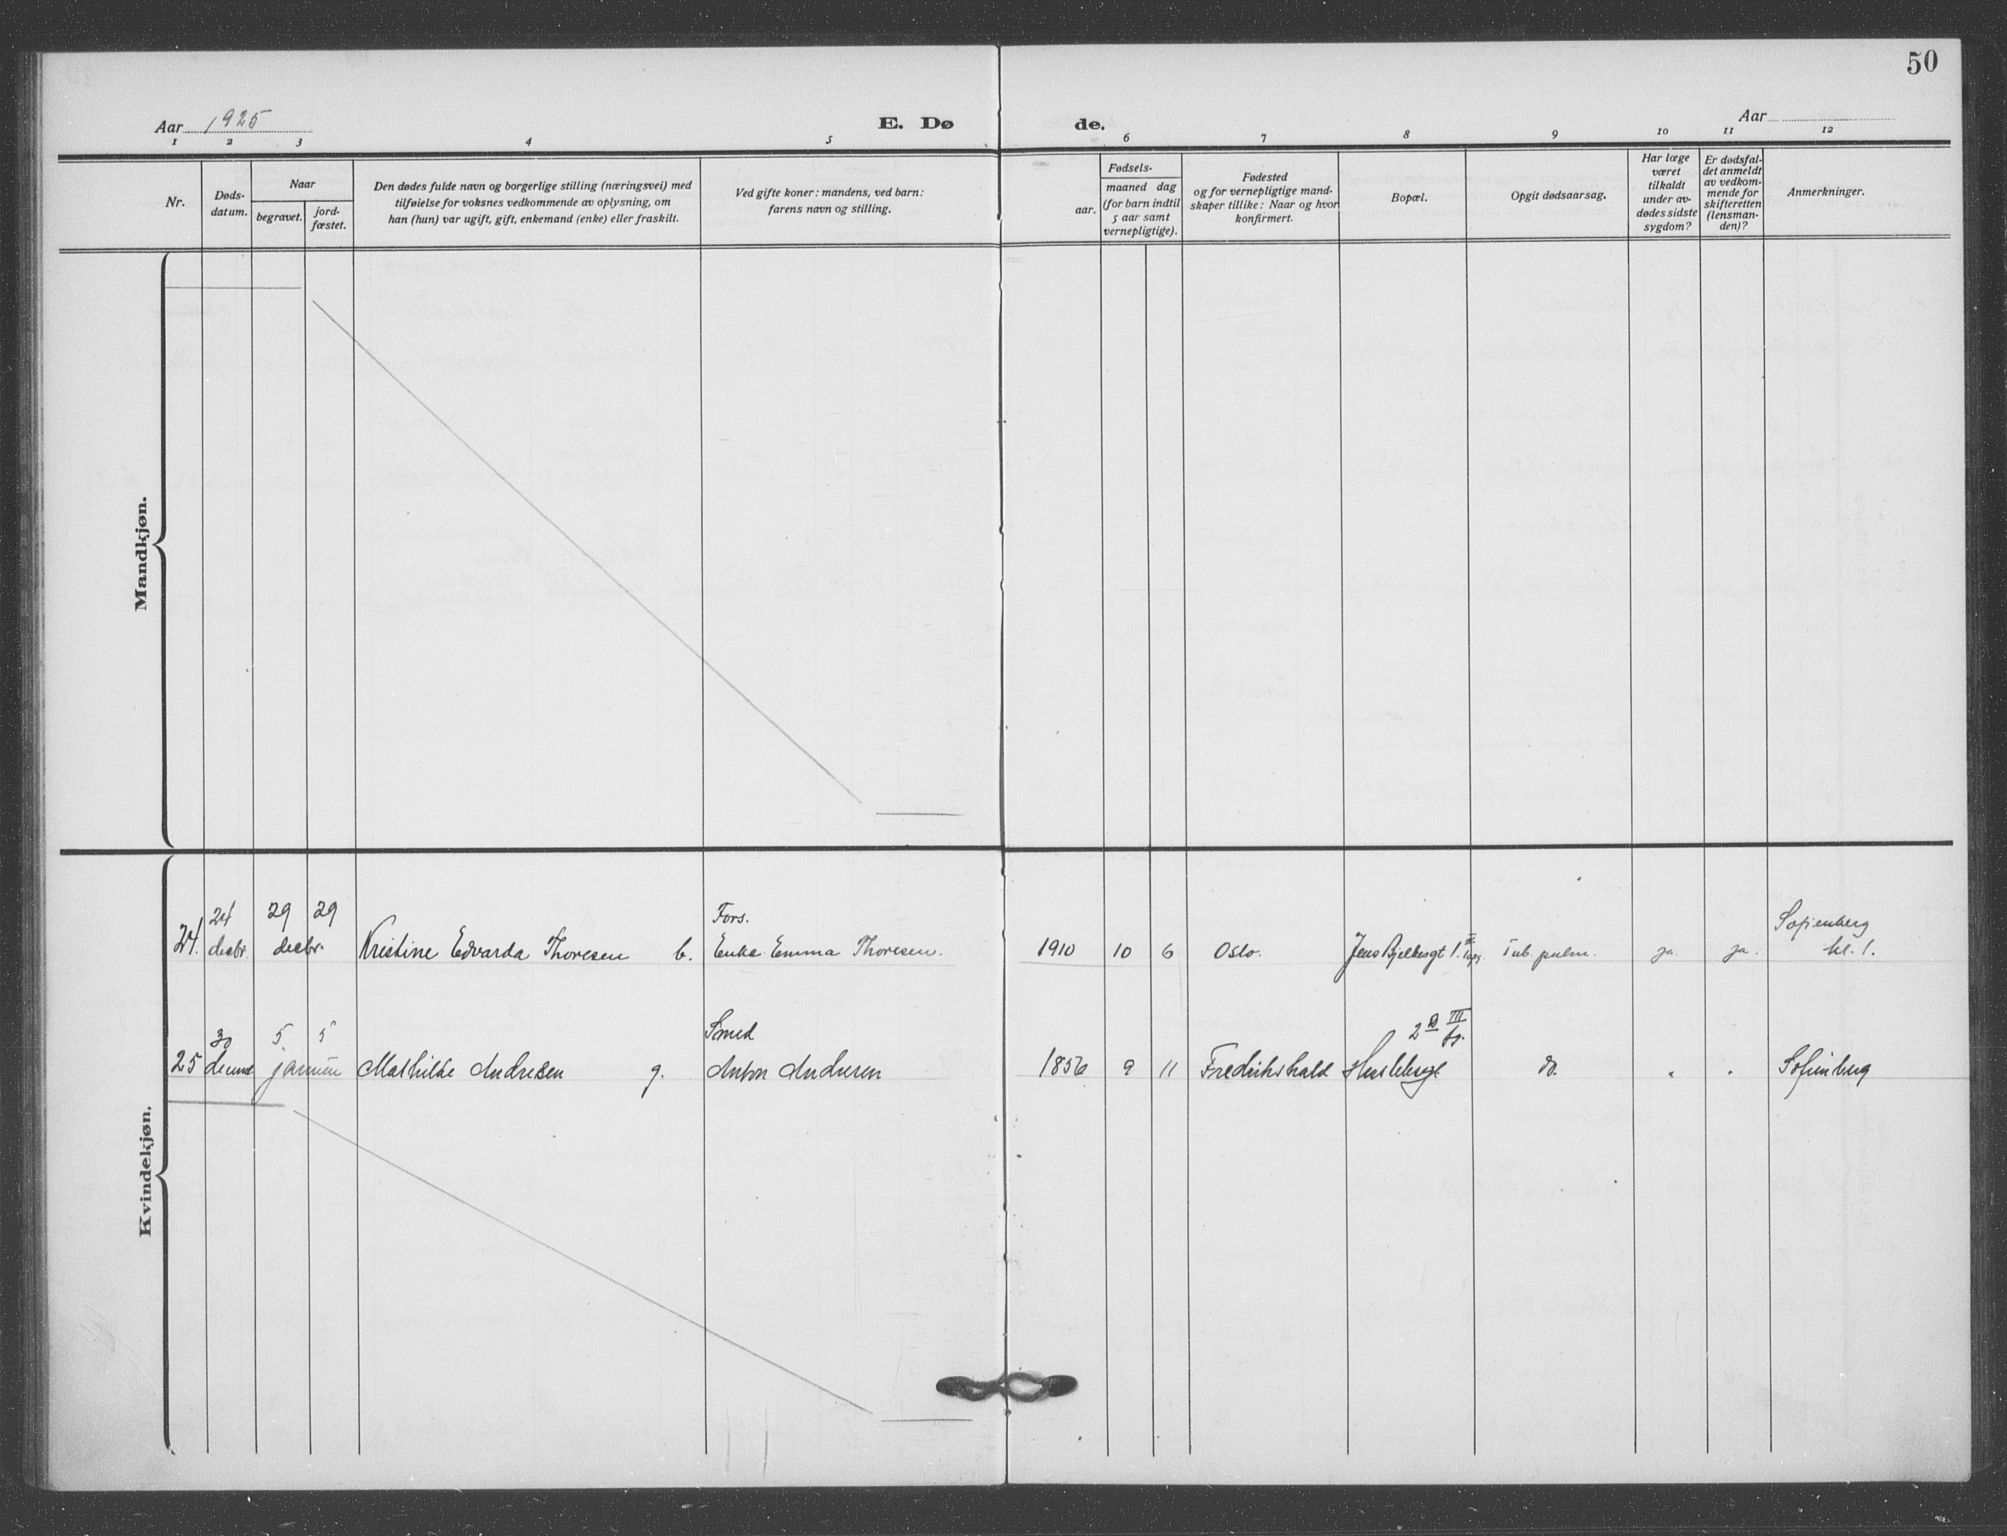 50
Aar 1925
E. Døde.
Aar
1 2 3 4 5 6 7 8 9 10 11 12
Nr.
Døds-
datum.
Naar
begravet.
jord-
fæstet.
Den dødes fulde navn og borgerlige stilling (næringsvei) med
tilføielse for voksnes vedkommende av oplysning, om
han (hun) var ugift, gift, enkemand (enke) eller fraskilt.
Ved gifte koner: mandens, ved barn:
farens navn og stilling.
Fødsels-
aar.
maaned dag
(for barn indtil
5 aar samt
vernepligtige).
Fødested
og for vernepligtige mand-
skaper tillike: Naar og hvor
konfirmert.
Bopæl.
Opgit dødsaarsag.
Har læge
været
tilkaldt
under av-
dødes sidste
sygdom?
Er dødsfal-
det anmeldt
av vedkom-
mende for
skifteretten
(lensman-
den)?
Anmerkninger.
Mandkjøn.
Kvindekjøn.
24 29 29 Fors. Sofienberg
24. decbr. decbr. Kristine Edvarda Thoresen b. Enke Emma Thoresen. 1910 10 6 Oslo. Jens Bjelkesgt 1. Tub. pulm. ja ja. kl. 1.
30 5 5 Smed 2 III
25 januar Mathilde Andresen g. Anton Andresen 1856 9 11 Fredrikshald do. " " Sofienberg